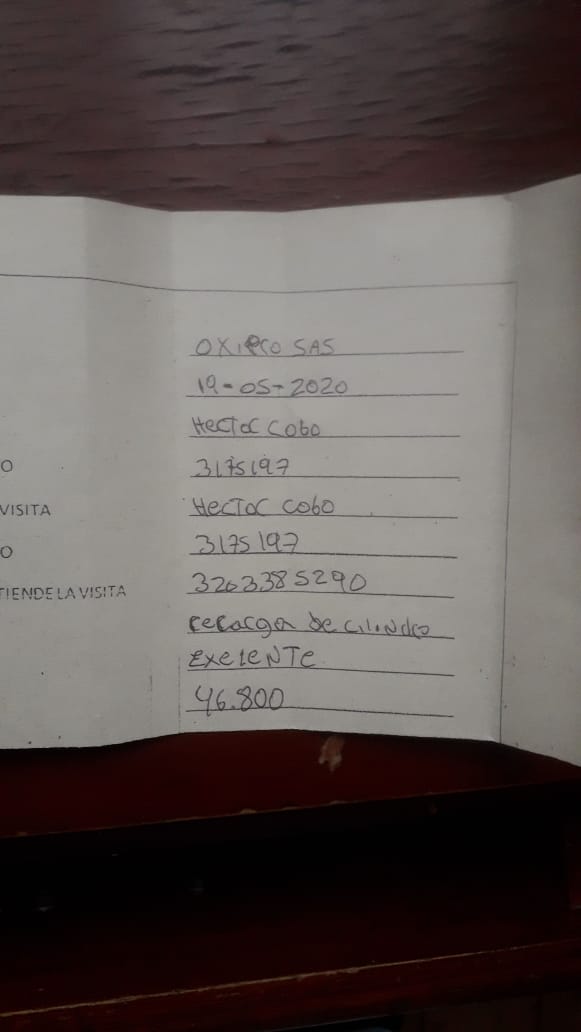 OXIPRO SAS
19-05-2020
HecTor Cobo
O 3175197
VISITA HecTor Cobo
O 3175197
TIENDE LA VISITA 3203385290
recarga De cilindro
ExeleNTe
46.800